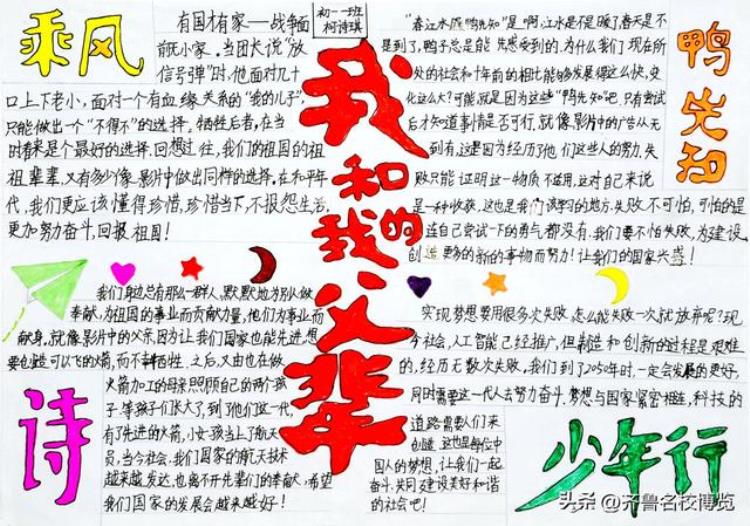 乘风
初一一班
柯诗琪
有国才有家——战争面
前无小家。当团长说“放
信号弹”时,他面对几十
口上下老小,面对一个有血缘关系的“我的儿子”,
只能做出一个“不得不”的选择。牺牲后者,在当
时看来是个最好的选择。回想过往,我们的祖国的祖
祖辈辈,又有多少像影片中做出同样的选择。在和平年
代,我们更应该懂得珍惜,珍惜当下,不报怨生活,
更加努力奋斗,回报祖国!
我和我的父辈
鸭先知
“春江水暖鸭先知”是啊,江水是不是暖了,春天是不
是到了,鸭子总是能先感受到的。为什么我们现在所
处的社会和十年前的相比能够发展得这么快,变
化这么大?可能就是因为这些“鸭先知”吧。只有尝试
后才知道事情是否可行,就像影片中的广告从无
到有,这是因为经历了他们这些人的努力。失
败只能证明这一物质不适用,这对自己来说
是一种收获,这也是我们该学习的地方。失败不可怕,可怕的是
连自己尝试一下的勇气都没有。我们要不怕失败,为建设
创造更多的新的事物而努力!让我们的国家兴盛!
诗
我们身边总有那么一群人,默默地为别人做
奉献,为祖国的事业而贡献力量,他们为事业而
献身,就像影片中的父亲,因为让我们国家也能先进,想
要创造可以飞的火箭,而不幸牺牲。之后,又由也在做
火箭加工的母亲照顾自己的两个孩
子。等孩子们长大了,到了他们这一代,
有了先进的火箭,小女孩当上了航天
员,当今社会,我们国家的航天技术
越来越发达,也离不开先辈们的奉献,希望
我们国家的发展会越来越好!
少年行
实现梦想要用很多次失败,怎么能失败一次就放弃呢?现
今社会,人工智能已经推广,但制造和创新的过程是艰难
的,经历无数次失败,我们到了2050年时,一定会发展的更好,
同时需要这一代人去努力奋斗。梦想与国家紧密相连,科技的
道路需要人们来
创造,这也是每位中
国人的梦想,让我们一起
奋斗,共同建设美好和谐
的社会吧!
头条 @齐鲁名校博览